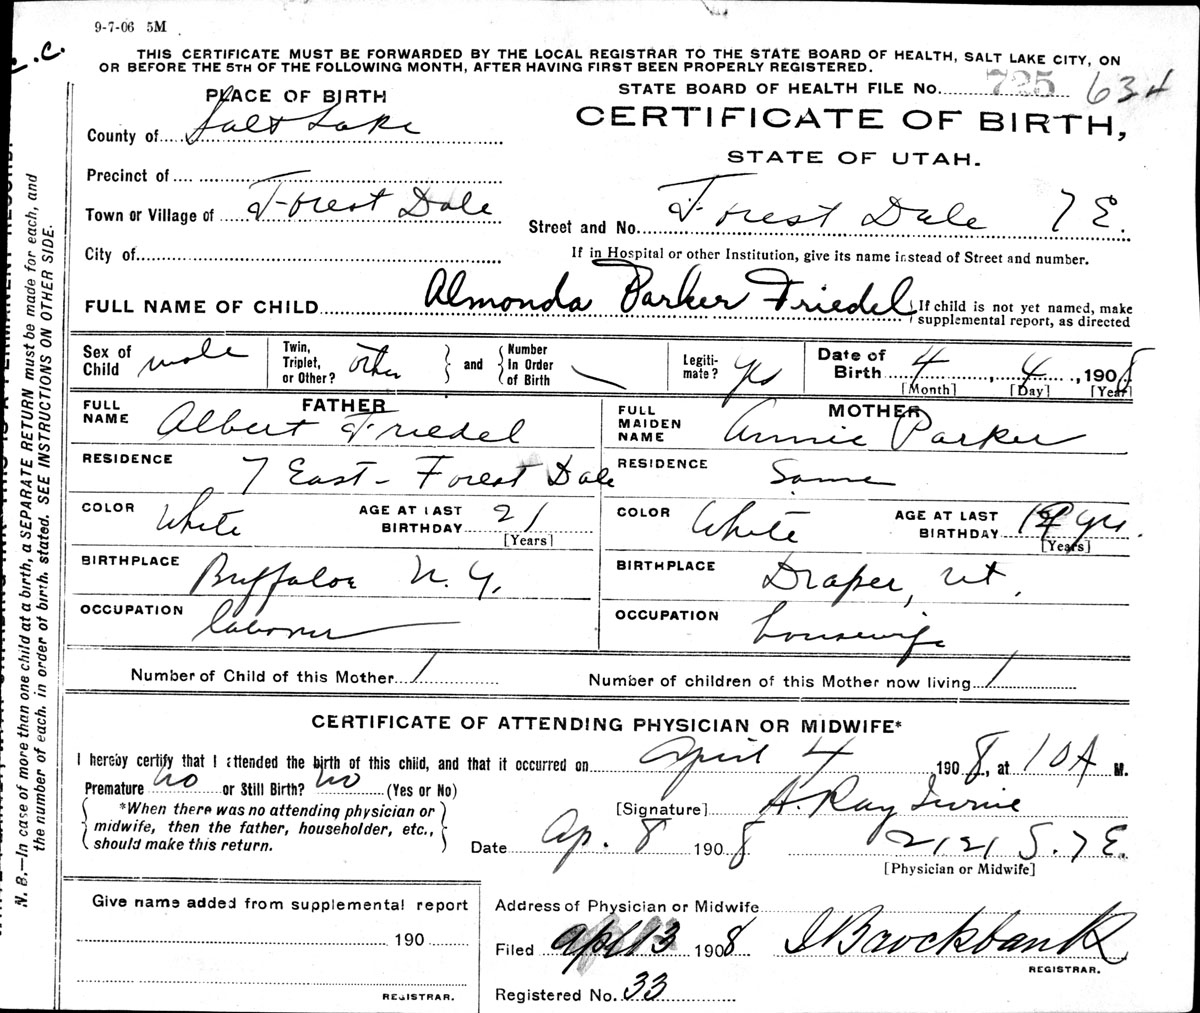 9-7-06 5M
C.C.
THIS CERTIFICATE MUST BE FORWARDED BY THE LOCAL REGISTRAR TO THE STATE BOARD OF HEALTH, SALT LAKE CITY, ON
OR BEFORE THE 5TH OF THE FOLLOWING MONTH, AFTER HAVING FIRST BEEN PROPERLY REGISTERED.
STATE BOARD OF HEALTH FILE No. 725 634
PLACE OF BIRTH
CERTIFICATE OF BIRTH,
County of Salt Lake
STATE OF UTAH.
Precinct of
Town or Village of Forest Dale
Street and No. Forest Dale 7 E.
City of
If in Hospital or other Institution, give its name instead of Street and number.
FULL NAME OF CHILD Almonda Parker Friedel {If child is not yet named, make
supplemental report, as directed
Sex of Child male Twin, Triplet, or Other? other and Number In Order of Birth Legiti-mate? yes Date of Birth 4, 4, 1908
[Month] [Day] [Year]
FATHER MOTHER
FULL NAME Albert Friedel FULL MAIDEN NAME Annie Parker
RESIDENCE 7 East - Forest Dale RESIDENCE Same
COLOR White AGE AT LAST BIRTHDAY 21 [Years] COLOR White AGE AT LAST BIRTHDAY yrs. [Years]
BIRTHPLACE Buffaloe N.Y. BIRTHPLACE Draper, Ut.
OCCUPATION laborer OCCUPATION housewife
Number of Child of this Mother 1 Number of children of this Mother now living 1
CERTIFICATE OF ATTENDING PHYSICIAN OR MIDWIFE*
I hereby certify that I attended the birth of this child, and that it occurred on April 4 1908, at 10 A M.
Premature no or Still Birth? no (Yes or No)
*When there was no attending physician or
midwife, then the father, householder, etc.,
should make this return.
[Signature] A. Ray Irvine
Date Ap. 8 1908 2121 S. 7 E.
[Physician or Midwife]
Give name added from supplemental report
190
REGISTRAR.
Address of Physician or Midwife
Filed Apl 13 1908 Brockbank
REGISTRAR.
Registered No. 33
N. B.—In case of more than one child at a birth, a SEPARATE RETURN must be made for each, and
the number of each, in order of birth, stated. SEE INSTRUCTIONS ON OTHER SIDE.